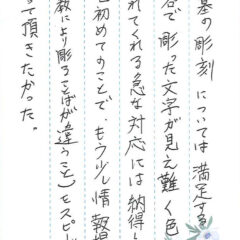 基の彫刻については満足する
谷で彫った文字が見え難く色
れてくれる急な対応には納得し
初めてのことで、もう少し情報
数により彫ることばが違うこと)をスピー
って頂きたかった。